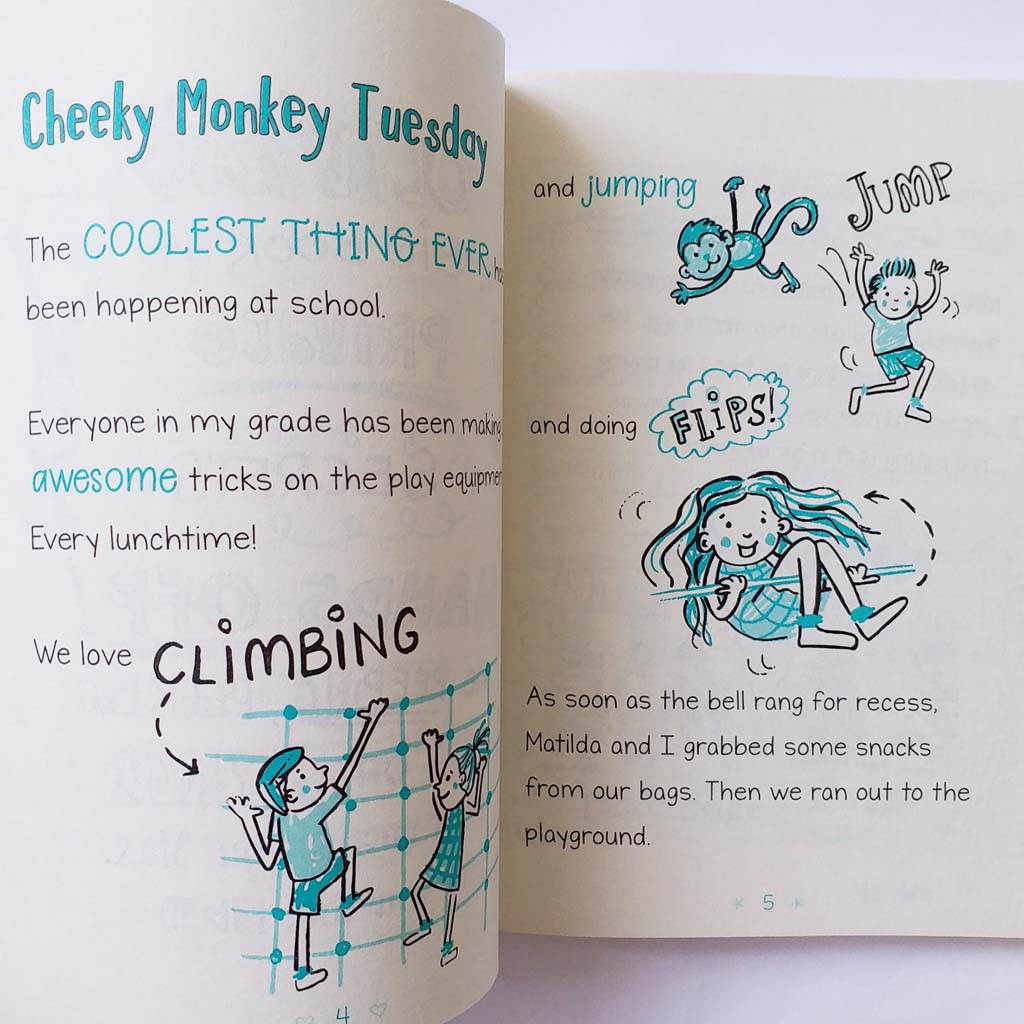 Cheeky Monkey Tuesday
The COOLEST THING EVER
been happening at school.
Everyone in my grade has been making
awesome tricks on the play
Every lunchtime!
We love CLIMBING
4
and jumping
JUMP
and doing FLIPS!
As soon as the bell rang for recess,
Matilda and I grabbed some snacks
from our bags. Then we ran out to the
playground.
5